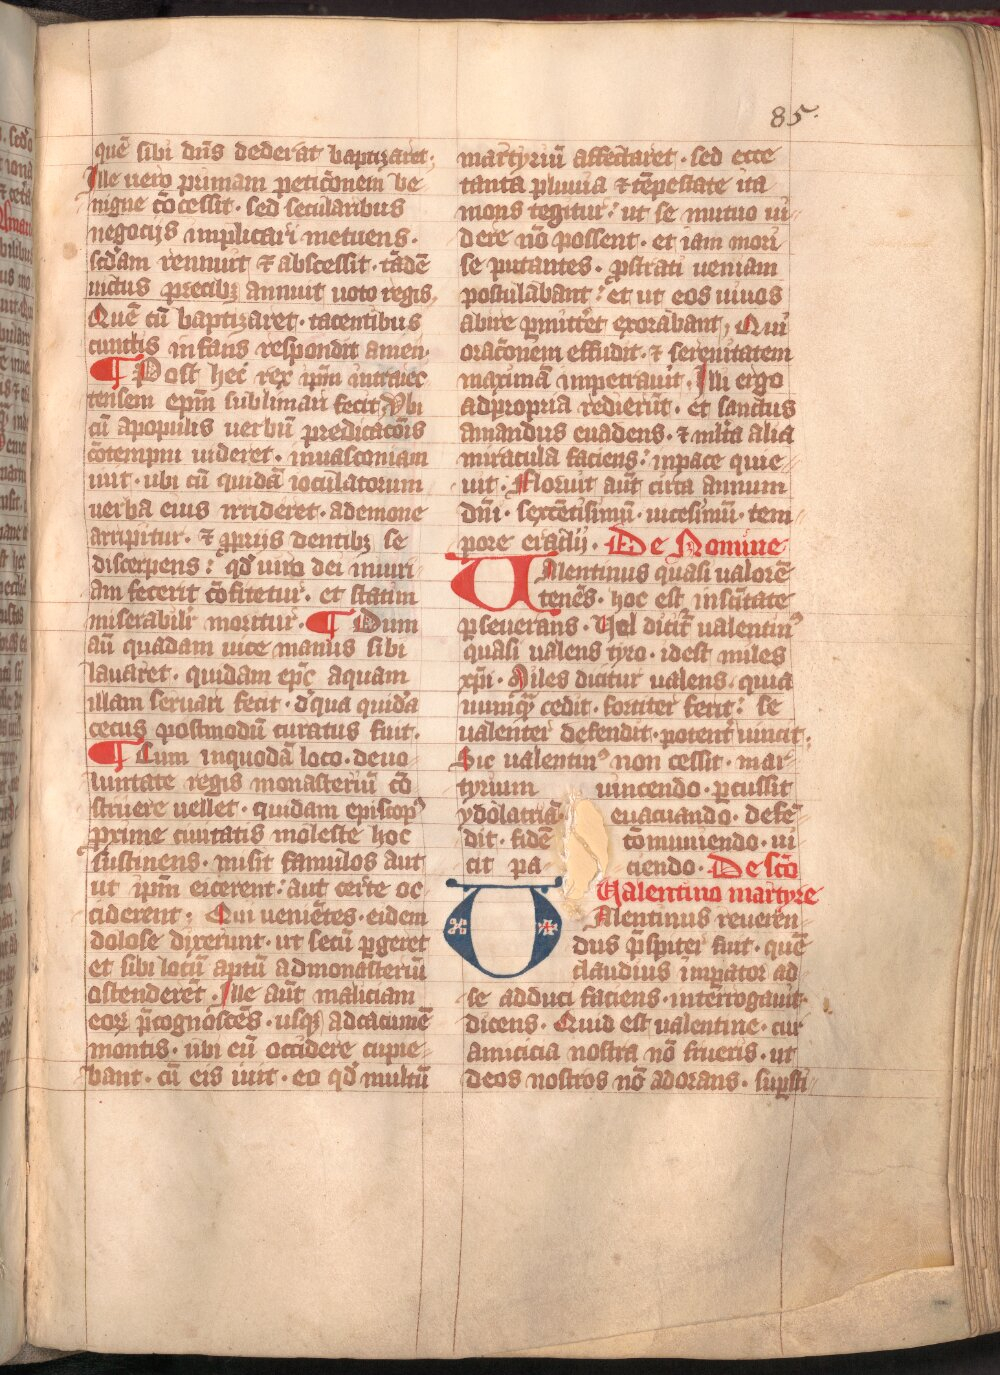 85.
quē sibi dn̄s dederat baptizaret.
Ille uero primam peticōnem be
nigne cōcessit. sed secularibus
negocijs implicari metuens.
scd̄am rennuit et abscessit. tādē
uictus precibꝫ annuit uoto regis
Quē cū baptizaret. tacentibus
cunctis infans respondit amen.
¶ Post hec rex ip̄m intraiec
tensem ep̄m sublimari fecit, Vbi
cū apopulis uerbū predicacōis
cōtempni uideret. inuasconiam
iuit. ubi cū quidā ioculatorum
uerba eius irrideret. ademone
arripitur. et ꝓpriis dentibꝫ se
discerpens: qd̄ uiro dei iniuri
am fecerit cōfitetur. et statim
miserabilr̄ moritur. ¶ Dum
aū quadam uice manus sibi
lauaret. quidam ep̄c aquam
illam seruari fecit. d̄qua quidā
cecus postmodū curatus fuit.
¶ Cum inquodā loco. deuo
luntate regis monasteriū cō
struere uellet. quidam episcopꝰ
ꝓxime ciuitatis moleste hoc
sustinens. misit famulos aut
ut ip̄m eicerent: aut certe oc
ciderent: Qui ueniētes. eidem
dolose dixerunt. ut secū ꝑgeret
et sibi locū aptū admonasteriū
ostenderet. Ille aūt maliciam
eoꝝ p̄cognoscēs. usqꝫ adcacumē
montis. ubi eū occidere cupie
bant. cū eis iuit. eo qd̄ multū
martyriū affectaret. sed ecce
tanta pluuia et tēpestate ita
mons tegitur: ut se mutuo ui
dere nō possent. et iam mori
se putantes. ꝓstrati ueniam
postulabant: et ut eos uiuos
abire ꝑmittet exorabant, Qui
oracōnem effudit. et serenitatem
maximā impetrauit. Illi ergo
adpropria redierūt. et sanctus
amandus euadens. et mlta alia
miracula faciens: inpace quie
uit. Floruit aūt circa annum
dn̄i. sexcētisimū. uicesimū. tem
pore eraclij. De Nomine
Valentinus quasi ualorē
tenēs. hoc est insc̄itate
ꝑseuerans. Vel dicit᷑ ualentinꝰ
quasi ualens tyro. idest miles
xp̄i. Miles dicitur ualens. quia
nunqꝫ cedit. fortiter ferit: se
ualenter defendit. potent᷑ uincit.
Sic ualentinꝰ non cessit. mar
tyrium uincendo. ꝑcussit
ydolatriā. euacuando. defē
dit. fidē cōmuniendo. ui
cit pa ciendo. De sc̄o
Valentino martyre
Valentinus reueren
dus p̄sbiter fuit. quē
claudius imꝑator ad
se adduci faciens. interrogauit.
dicens. Quid est ualentine. cur
amicicia nostra nō frueris. ut
deos nostros nō adorans. suꝑsti